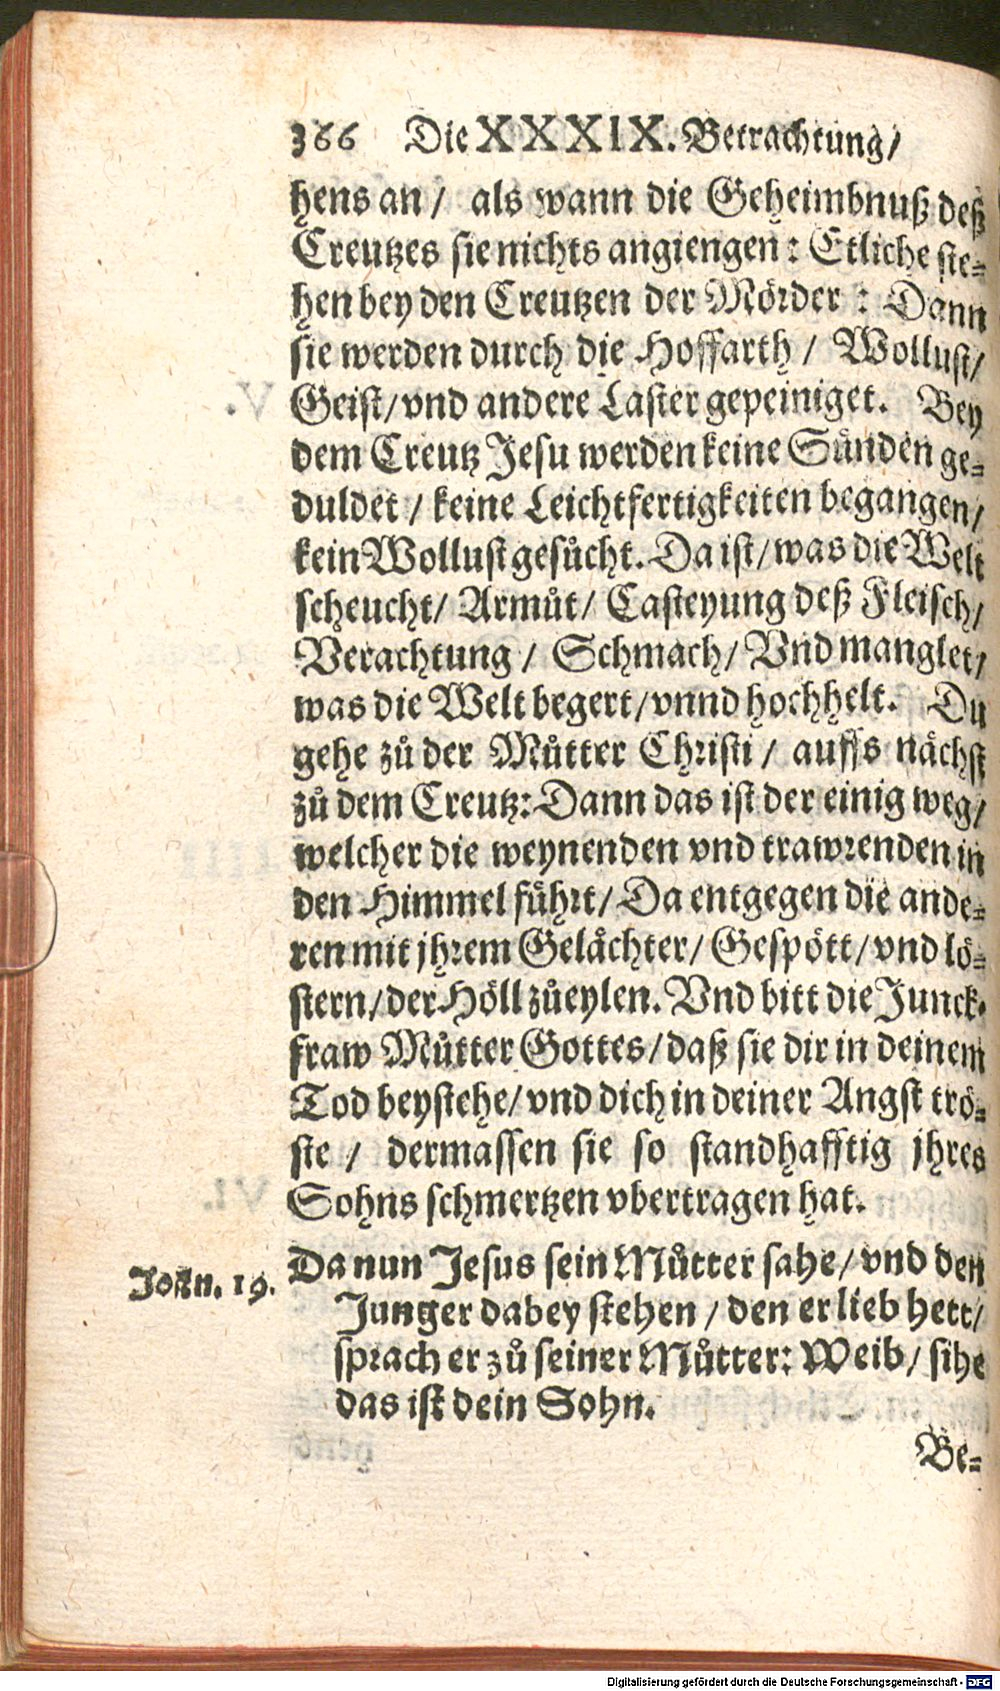 366 Die XXXIX. Betrachtung/
hens an/ als wann die Geheimbnuß deß
Creutzes sie nichts angiengen: Etliche ste-
hen bey den Creutzen der Mörder: Dann
sie werden durch die Hoffarth/ Wollust/
Geist/ vnd andere Laster gepeiniget. Bey
dem Creutz Jesu werden keine Sünden ge-
duldet/ keine Leichtfertigkeiten begangen/
kein Wollust gesůcht. Da ist/ was die Welt
scheucht/ Armůt/ Casteyung deß Fleisch/
Verachtung/ Schmach/ Vnd manglet/
was die Welt begert/ vnnd hochhelt. Du
gehe zů der Můtter Christi/ auffs nächst
zů dem Creutz: Dann das ist der einig weg/
welcher die weynenden vnd trawrenden in
den Himmel führt/ Da entgegen die ande-
ren mit jhrem Gelächter/ Gespött/ vnd lö-
stern/ der Höll zůeylen. Vnd bitt die Junck-
fraw Můtter Gottes/ daß sie dir in deinem
Tod beystehe/ vnd dich in deiner Angst trö-
ste/ dermassen sie so standhafftig jhres
Sohns schmertzen vbertragen hat.
John. 19. Da nun Jesus sein Můtter sahe/ vnd den
Junger dabey stehen/ den er lieb hett/
sprach er zů seiner Můtter: Weib/ sihe
das ist dein Sohn.
Be-
Digitalisierung gefördert durch die Deutsche Forschungsgemeinschaft - DFG